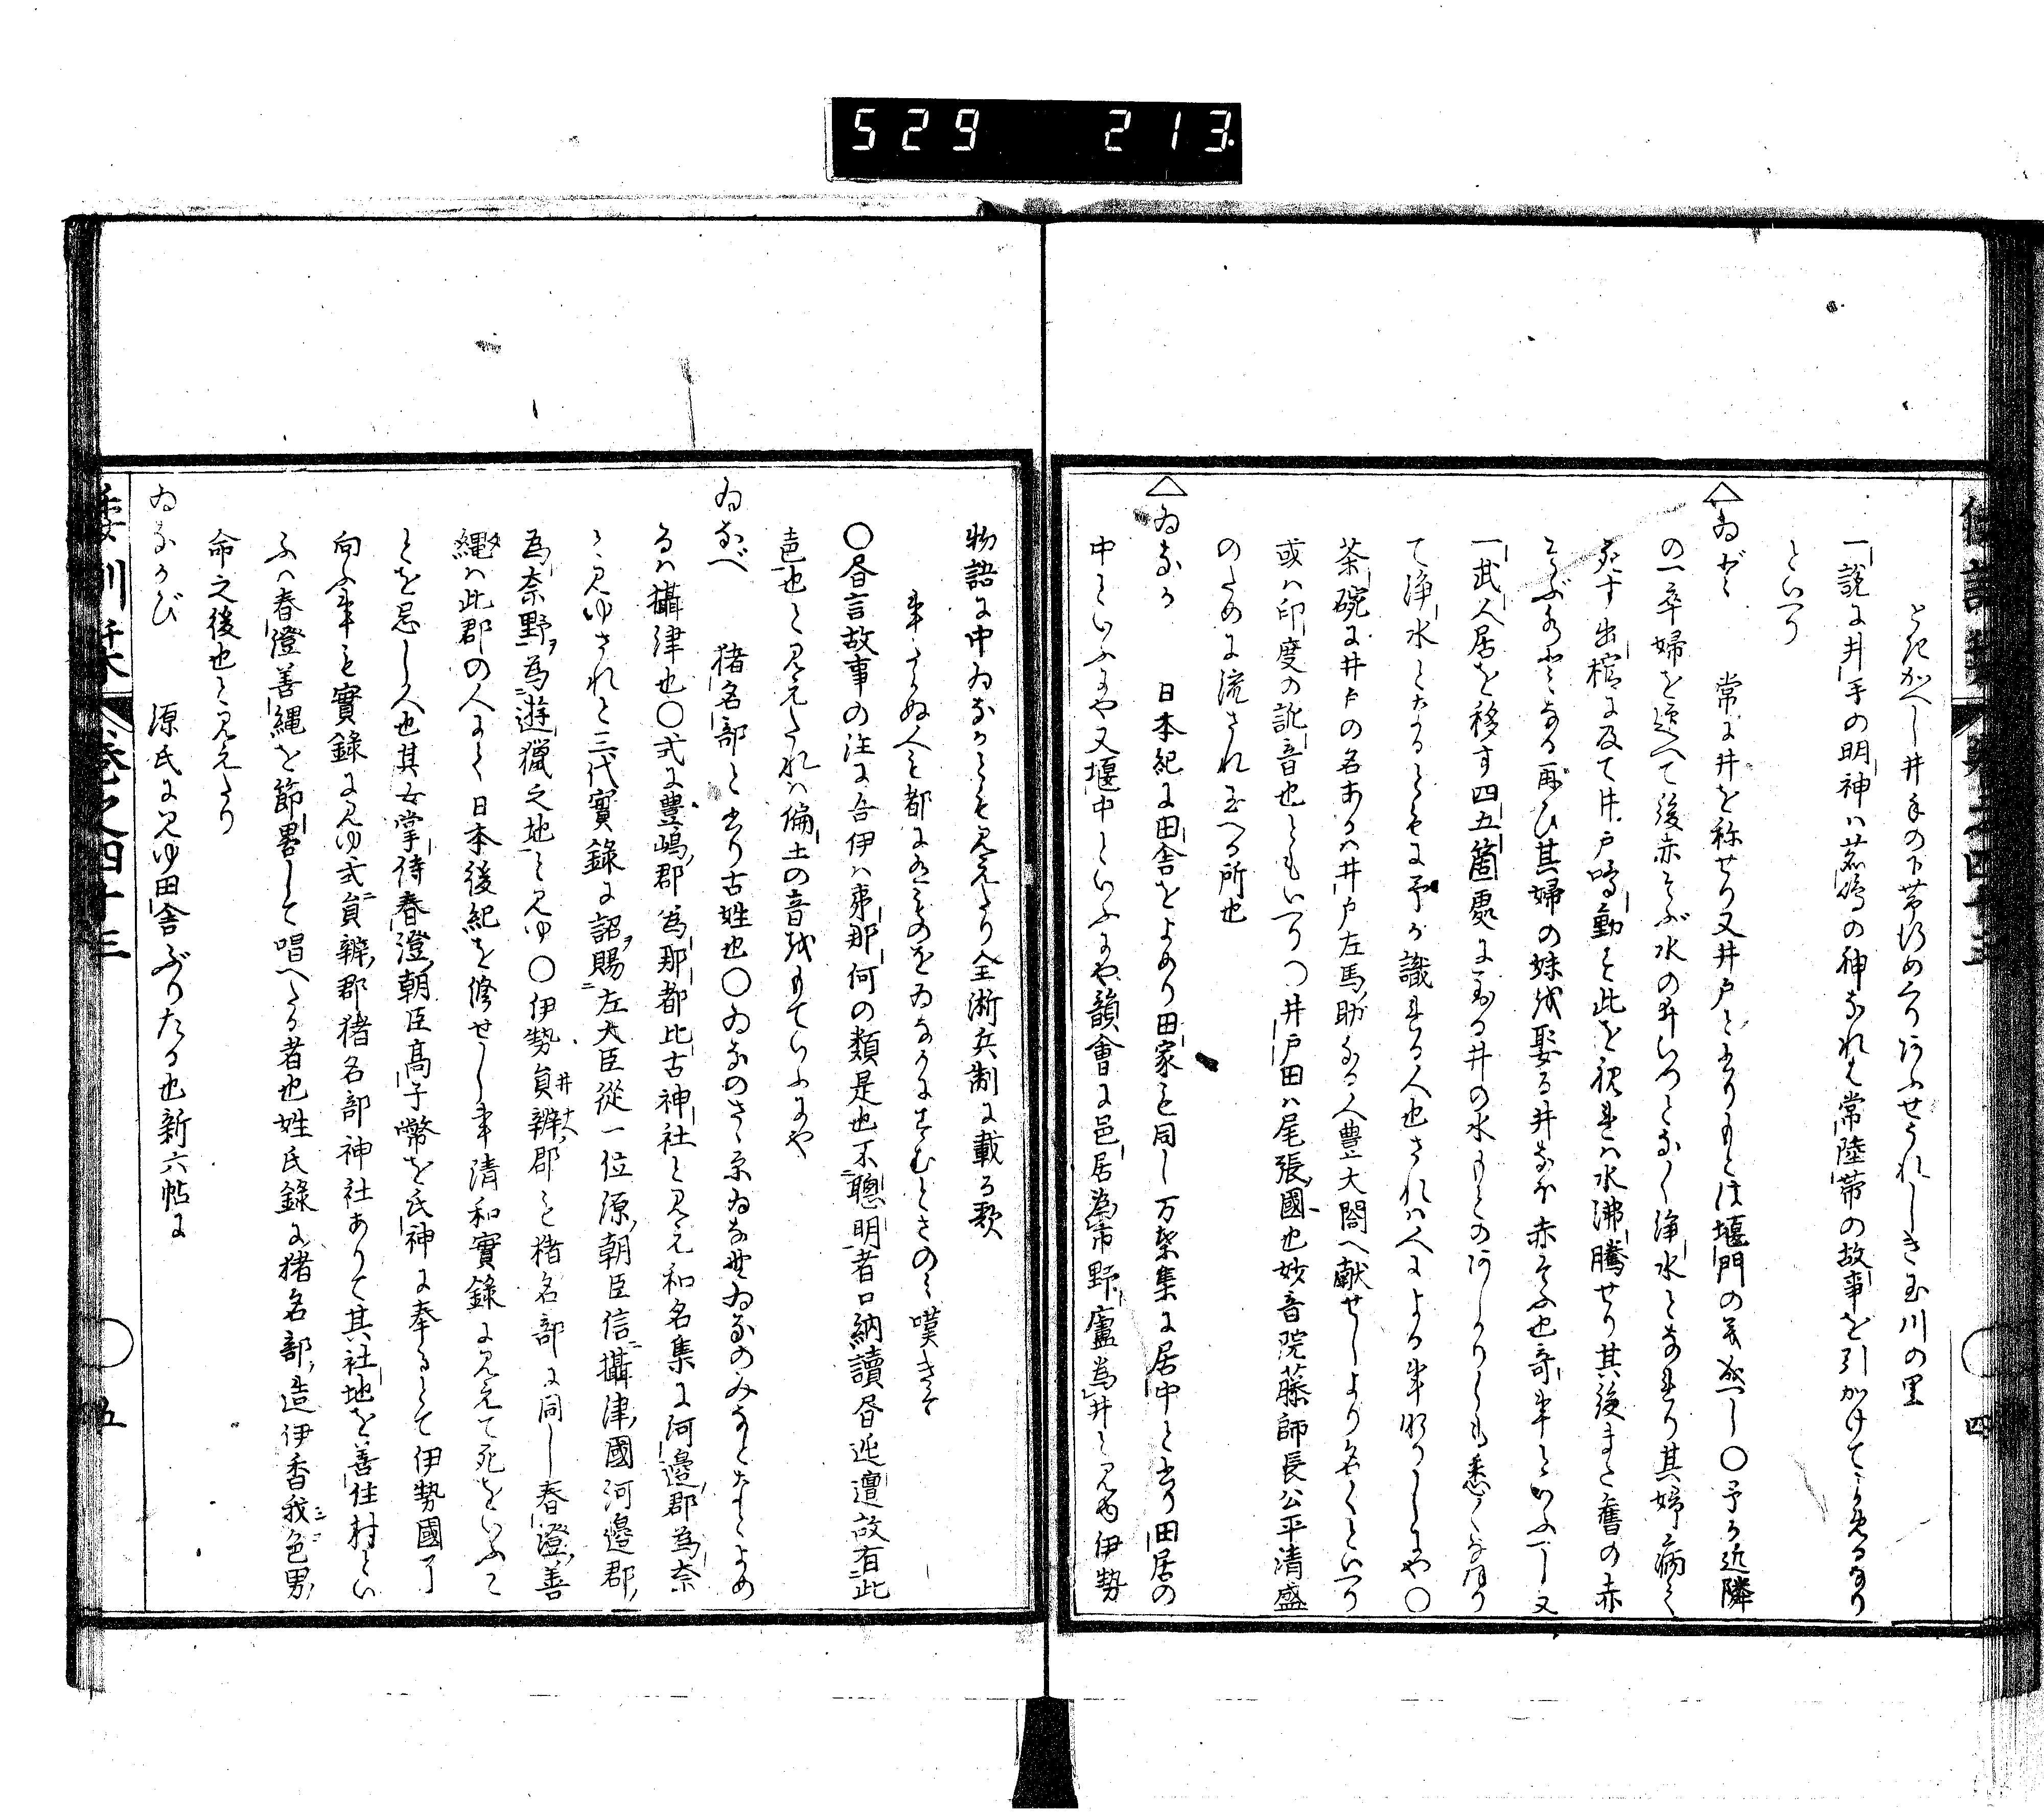 529 213.
ときかへし井手の下帯行めくりあふせうれしき玉川の里
一説に井手の明神は鹿嶋の神なれは常陸帯の故事を引かけてよめるなり
といへり
△ゐど 常に井を称せり又井戸と書りもとは堰門の義成へし○予か近隣
の一卒婦を迎へて後赤そぶ水の井いつとなく浄水となれり其婦病て
死す出棺に及て井戸鳴動す此を視れは水沸騰せり其後また舊の赤
そぶ水となる再ひ其婦の妹を娶る井なほ赤そふ也奇事といふへし又
一武人居を移す四五箇處に至る井の水もとのあしかりしも悉く
て浄水となるともに予か識れる人也されは人による事有しにや○
茶碗に井戸の名あるは井戸左馬助なる人豊大閤へ献せしより名くといへり
或は印度の訛音也ともいへり○井戸田は尾張國也妙音院藤師長公平清盛
のために流され玉へる所也
△ゐなか 日本紀に田舎をよめり田家も同し万葉集に居中と書り田居の
中といふにや又堰中といふにや韻會に邑居為市野廬為井と見ゆ伊勢
物語に中ゐなかとも見えたり全浙兵制に載る歌
事たらぬ人も都にあるものをゐなかにすむとさのみ嘆きそ
○昬言故事の注に吾伊は弗那何の類是也不聰明者口納讀昬迍邅故有此
音也と見えたれは偏土の音をもていふにや
ゐなべ 猪名部と書り古姓也○ゐなのさゝ原ゐな野ゐなのみなとなとよめ
るは攝津也○式に豊嶋郡為那都比古神社と見え和名集に河邉郡為奈
と見ゆされと三代實錄に詔賜左大臣從一位源朝臣信攝津國河邉郡
為奈野為遊獵之地と見ゆ○伊勢員辨郡も猪名部に同し春澄善
縄は此郡の人にて日本後紀を修せし事清和實錄に見えて死をいふこ
とを忌し人也其女掌侍春澄朝臣高子幣を氏神に奉るとて伊勢國に
向ふ事も實錄に見ゆ式員辨郡猪名部神社ありて其社地を善住村とい
ふは春澄善縄を節畧して唱へたる者也姓氏錄に猪名部造伊香我色男
命之後也と見えたり
ゐなかび 源氏に見ゆ田舎ぶりたる也新六帖に
倭訓栞 巻之四十三 五
四